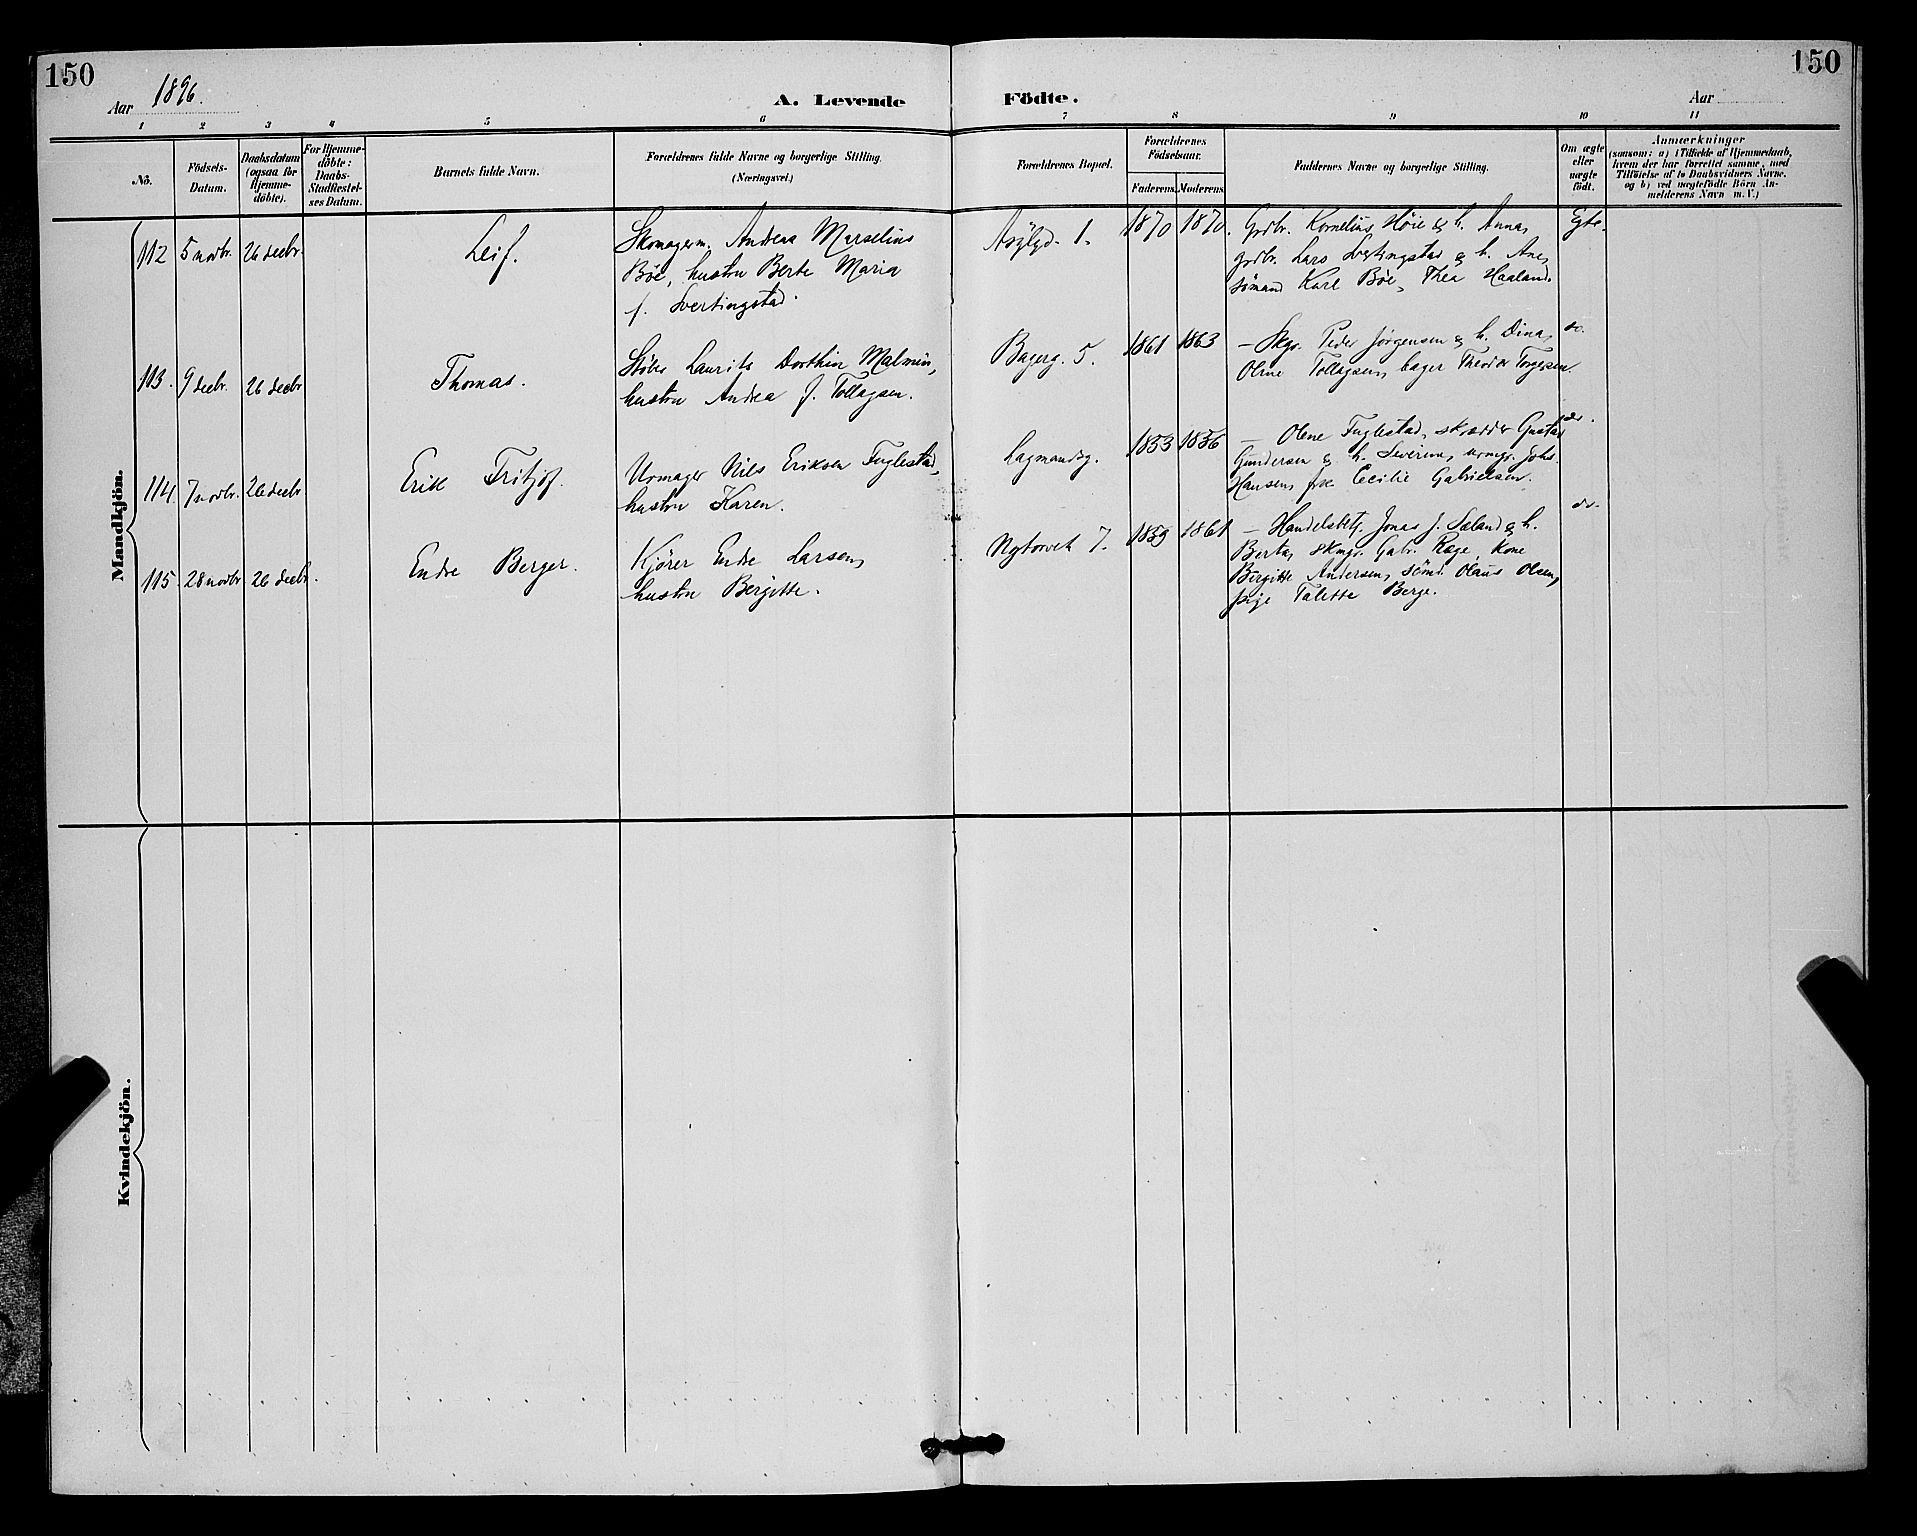 150
150
Aar 1896.
A. Levende Födte.
Aar
1 2 3 4 5 6 7 8 9 10 11
No.
Födsels-Datum.
Daabsdatum (ogsaa for Hjemme-döbte).
For Hjemme-döbte: Daabs-Stadfæstel-ses Datum.
Barnets fulde Navn.
Forældrenes fulde Navne og borgerlige Stilling.
(Næringsvei.)
Forældrenes Bopæl.
Forældrenes Födselsaar.
Faderens. Moderens.
Faddernes Navne og borgerlige Stilling.
Om ægte eller uægte födt.
Anmærkninger
(saasom: a) i Tilfælde af Hjemmedaab,
hvem der har forrettet samme, med
Tilföielse af to Daabsvidners Navne,
og b) ved uægtefödte Börn An-
melderens Navn m. V.)
Mandkjön.
112 5 novbr. 26 decbr. Leif.
Skomagerm. Andreas Marselius
Böe, hustru Berte Maria
f. Svertingstad.
Asylgd. 1. 1870 1870.
Grdbr. Kornelius Höie & h. Anna,
grdbr. Lars Svertingstad & h. Ane,
sömand Karl Böe, Thea Haaland.
Egte.
113. 9 decbr. 26 decbr Thomas.
Laurits Dorthin Malmin,
hustru Andrea f. Tollagsen.
Bagerg. 5. 1861 1863
– Skgr. Peder Jörgensen & h. Dina,
Olene Tollagsen, bager Theodor Torgessen.
do.
114. 7 novbr. 26 decbr Erik Fritjof.
Urmager Nils Eriksen Fuglestad,
hustru Karen.
Lagmandsg. 1853 1856
– Olene Fuglestad, skrædder Gustav
Gundersen & h. Severine, urmgr. Johs.
Hansen, frk Cecilie Gabrielsen.
do.
115. 28 novbr 26 decbr. Endre Berger.
Kjörer Endre Larsen,
hustru Bergitte.
Nytorvet 7. 1859 1861
– Handelsbetj. Jonas J. Sæland & h.
Berta, skmgr. Gabr. Rege, kone
Bergitte Andersen, sömd. Olaus Olsen,
pige Talette Berge.
do.
Kvindekjön.